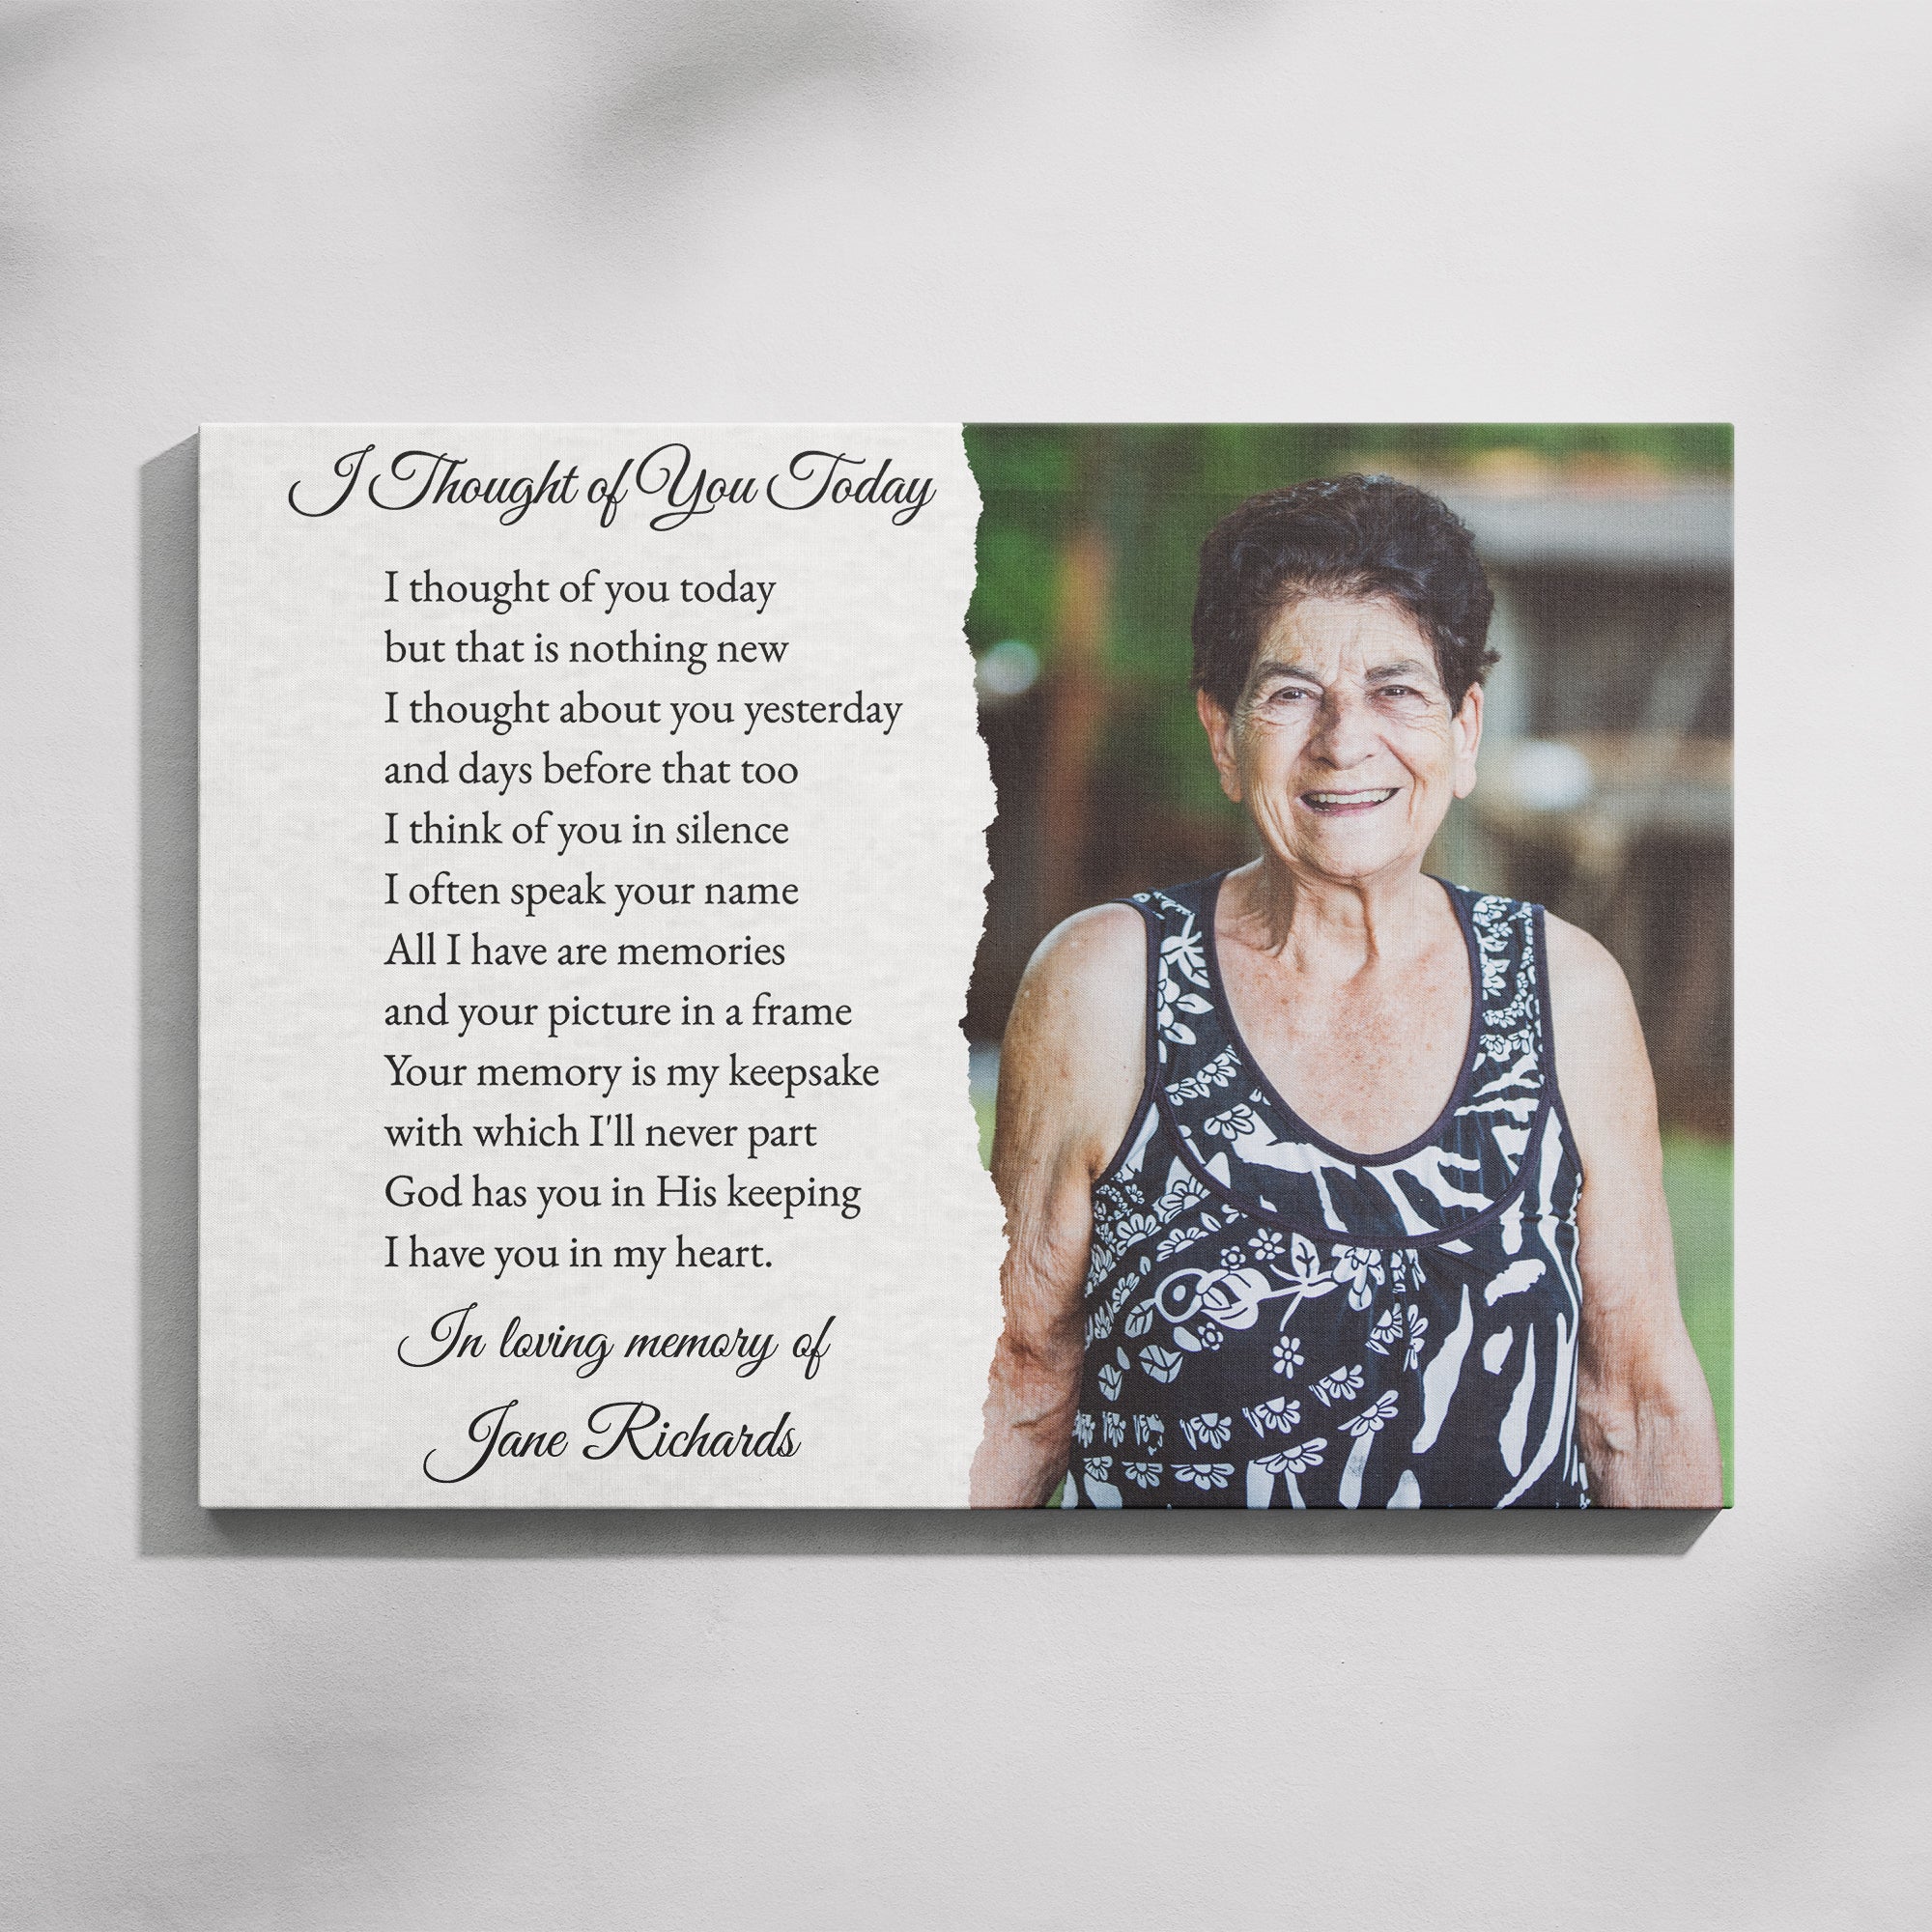 I Thought of You Today
I thought of you today
but that is nothing new
I thought about you yesterday
and days before that too
I think of you in silence
I often speak your name
All I have are memories
and your picture in a frame
Your memory is my keepsake
with which I'll never part
God has you in His keeping
I have you in my heart.
In loving memory of
Jane Richards